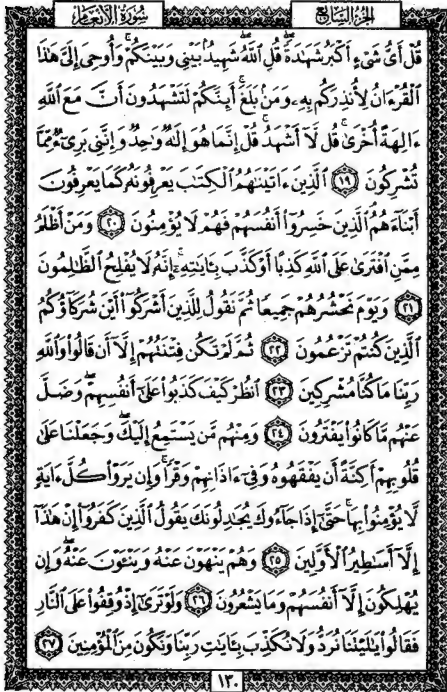 الجزء السابع
سورة الأنعام
قُلْ أَيُّ شَيْءٍ أَكْبَرُ شَهَٰدَةً ۖ قُلِ ٱللَّهُ ۖ شَهِيدٌۢ بَيْنِى وَبَيْنَكُمْ ۚ وَأُوحِىَ إِلَىَّ هَٰذَا
ٱلْقُرْءَانُ لِأُنذِرَكُم بِهِۦ وَمَنۢ بَلَغَ ۚ أَئِنَّكُمْ لَتَشْهَدُونَ أَنَّ مَعَ ٱللَّهِ
ءَالِهَةً أُخْرَىٰ ۚ قُل لَّآ أَشْهَدُ ۚ قُلْ إِنَّمَا هُوَ إِلَٰهٌ وَٰحِدٌ وَإِنَّنِى بَرِىٓءٌ مِّمَّا
تُشْرِكُونَ ١٩ ٱلَّذِينَ ءَاتَيْنَٰهُمُ ٱلْكِتَٰبَ يَعْرِفُونَهُۥ كَمَا يَعْرِفُونَ
أَبْنَآءَهُمُ ٱلَّذِينَ خَسِرُوٓا۟ أَنفُسَهُمْ فَهُمْ لَا يُؤْمِنُونَ ٢٠ وَمَنْ أَظْلَمُ
مِمَّنِ ٱفْتَرَىٰ عَلَى ٱللَّهِ كَذِبًا أَوْ كَذَّبَ بِـَٔايَٰتِهِۦٓ ۗ إِنَّهُۥ لَا يُفْلِحُ ٱلظَّٰلِمُونَ
٢١ وَيَوْمَ نَحْشُرُهُمْ جَمِيعًا ثُمَّ نَقُولُ لِلَّذِينَ أَشْرَكُوٓا۟ أَيْنَ شُرَكَآؤُكُمُ
ٱلَّذِينَ كُنتُمْ تَزْعُمُونَ ٢٢ ثُمَّ لَمْ تَكُن فِتْنَتُهُمْ إِلَّآ أَن قَالُوا۟ وَٱللَّهِ
رَبِّنَا مَا كُنَّا مُشْرِكِينَ ٢٣ ٱنظُرْ كَيْفَ كَذَبُوا۟ عَلَىٰٓ أَنفُسِهِمْ ۚ وَضَلَّ
عَنْهُم مَّا كَانُوا۟ يَفْتَرُونَ ٢٤ وَمِنْهُم مَّن يَسْتَمِعُ إِلَيْكَ ۖ وَجَعَلْنَا عَلَىٰ
قُلُوبِهِمْ أَكِنَّةً أَن يَفْقَهُوهُ وَفِىٓ ءَاذَانِهِمْ وَقْرًا ۚ وَإِن يَرَوْا۟ كُلَّ ءَايَةٍ
لَّا يُؤْمِنُوا۟ بِهَا ۚ حَتَّىٰٓ إِذَا جَآءُوكَ يُجَٰدِلُونَكَ يَقُولُ ٱلَّذِينَ كَفَرُوٓا۟ إِنْ هَٰذَآ
إِلَّآ أَسَٰطِيرُ ٱلْأَوَّلِينَ ٢٥ وَهُمْ يَنْهَوْنَ عَنْهُ وَيَنْـَٔوْنَ عَنْهُ ۖ وَإِن
يُهْلِكُونَ إِلَّآ أَنفُسَهُمْ وَمَا يَشْعُرُونَ ٢٦ وَلَوْ تَرَىٰٓ إِذْ وُقِفُوا۟ عَلَى ٱلنَّارِ
فَقَالُوا۟ يَٰلَيْتَنَا نُرَدُّ وَلَا نُكَذِّبَ بِـَٔايَٰتِ رَبِّنَا وَنَكُونَ مِنَ ٱلْمُؤْمِنِينَ ٢٧
١٣٠